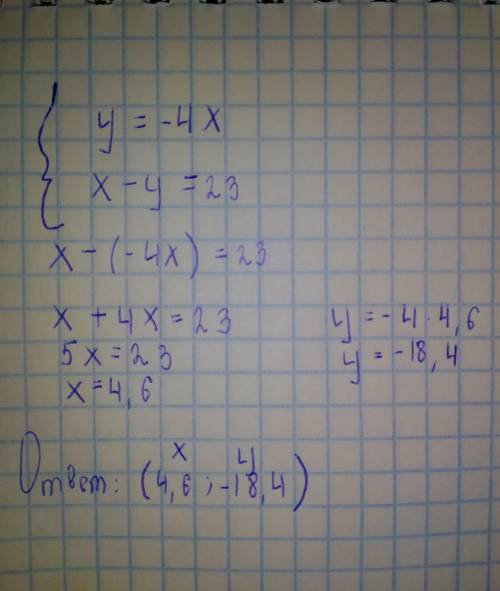 y = -4x
x - y = 23
x - (-4x) = 23
x + 4x = 23
5x = 23
x = 4,6
y = -4 · 4,6
y = -18,4
x y
Ответ: (4,6 ; -18,4)